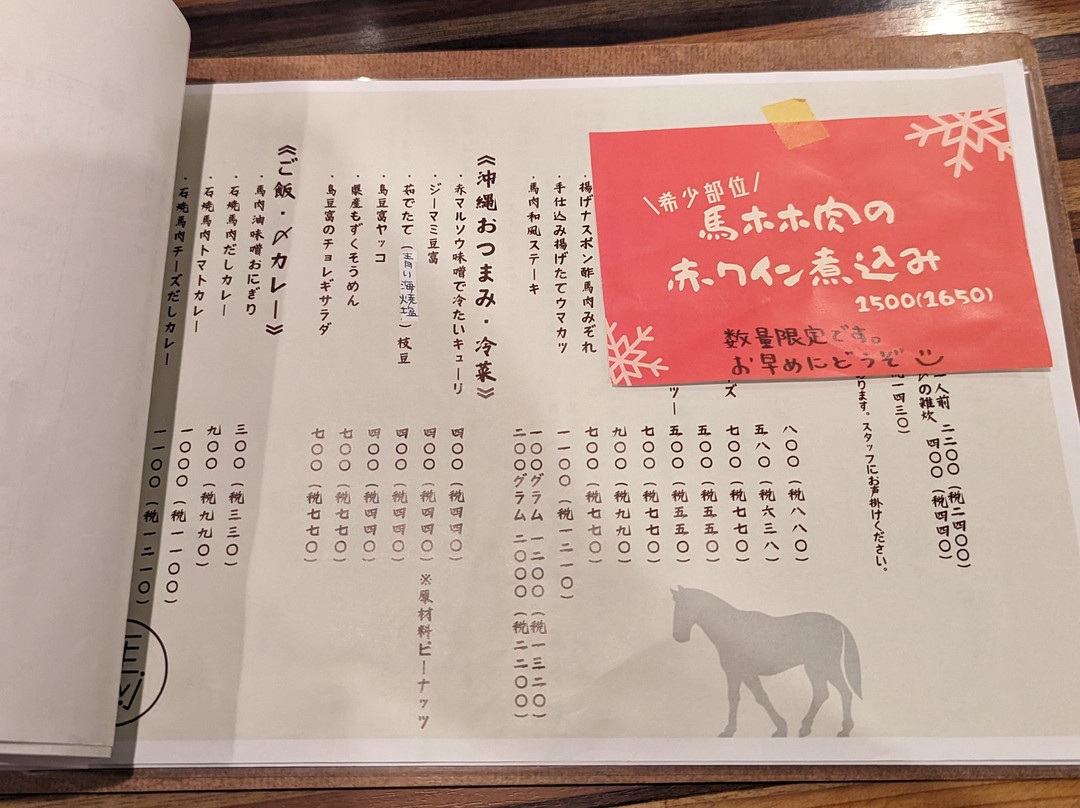 \希少部位/
馬ホホ肉の
赤ワイン煮込み
1500(1650)
数量限定です。
お早めにどうぞ
人前 二二〇〇(税二四〇〇)
の雑炊 四〇〇(税四四〇)
一四三〇)
ります。スタッフにお声掛けください。
八〇〇(税八八〇)
五八〇(税六三八)
ズ 七〇〇(税七七〇)
五〇〇(税五五〇)
ツー 五〇〇(税五五〇)
七〇〇(税七七〇)
九〇〇(税九九〇)
・揚げナスポン酢馬肉みぞれ 七〇〇(税七七〇)
・手仕込み揚げたてウマカツ 一一〇〇(税一二一〇)
・馬肉和風ステーキ 一〇〇グラム 一二〇〇(税一三二〇)
二〇〇グラム 二〇〇〇(税二二〇〇)
《沖縄おつまみ・冷菜》
・赤マルソウ味噌で冷たいキューリ 四〇〇(税四四〇)
・ジーマミ豆富 四〇〇(税四四〇) ※原材料ピーナッツ
・茹でたて(青い海焼塩)枝豆 四〇〇(税四四〇)
・島豆富ヤッコ 四〇〇(税四四〇)
・県産もずくそうめん 七〇〇(税七七〇)
・島豆富のチョレギサラダ 七〇〇(税七七〇)
《ご飯・〆カレー》
・馬肉油味噌おにぎり 三〇〇(税三三〇)
・石焼馬肉だしカレー 九〇〇(税九九〇)
・石焼馬肉トマトカレー 一〇〇〇(税一一〇〇)
・石焼馬肉チーズだしカレー 一一〇〇(税一二一〇)